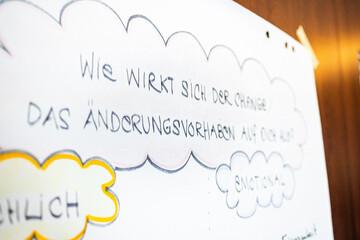 WIE WIRKT SICH DER CHANGE/
DAS ÄNDERUNGSVORHABEN AUF DICH AUS?
EMOTIONAL
HLICH